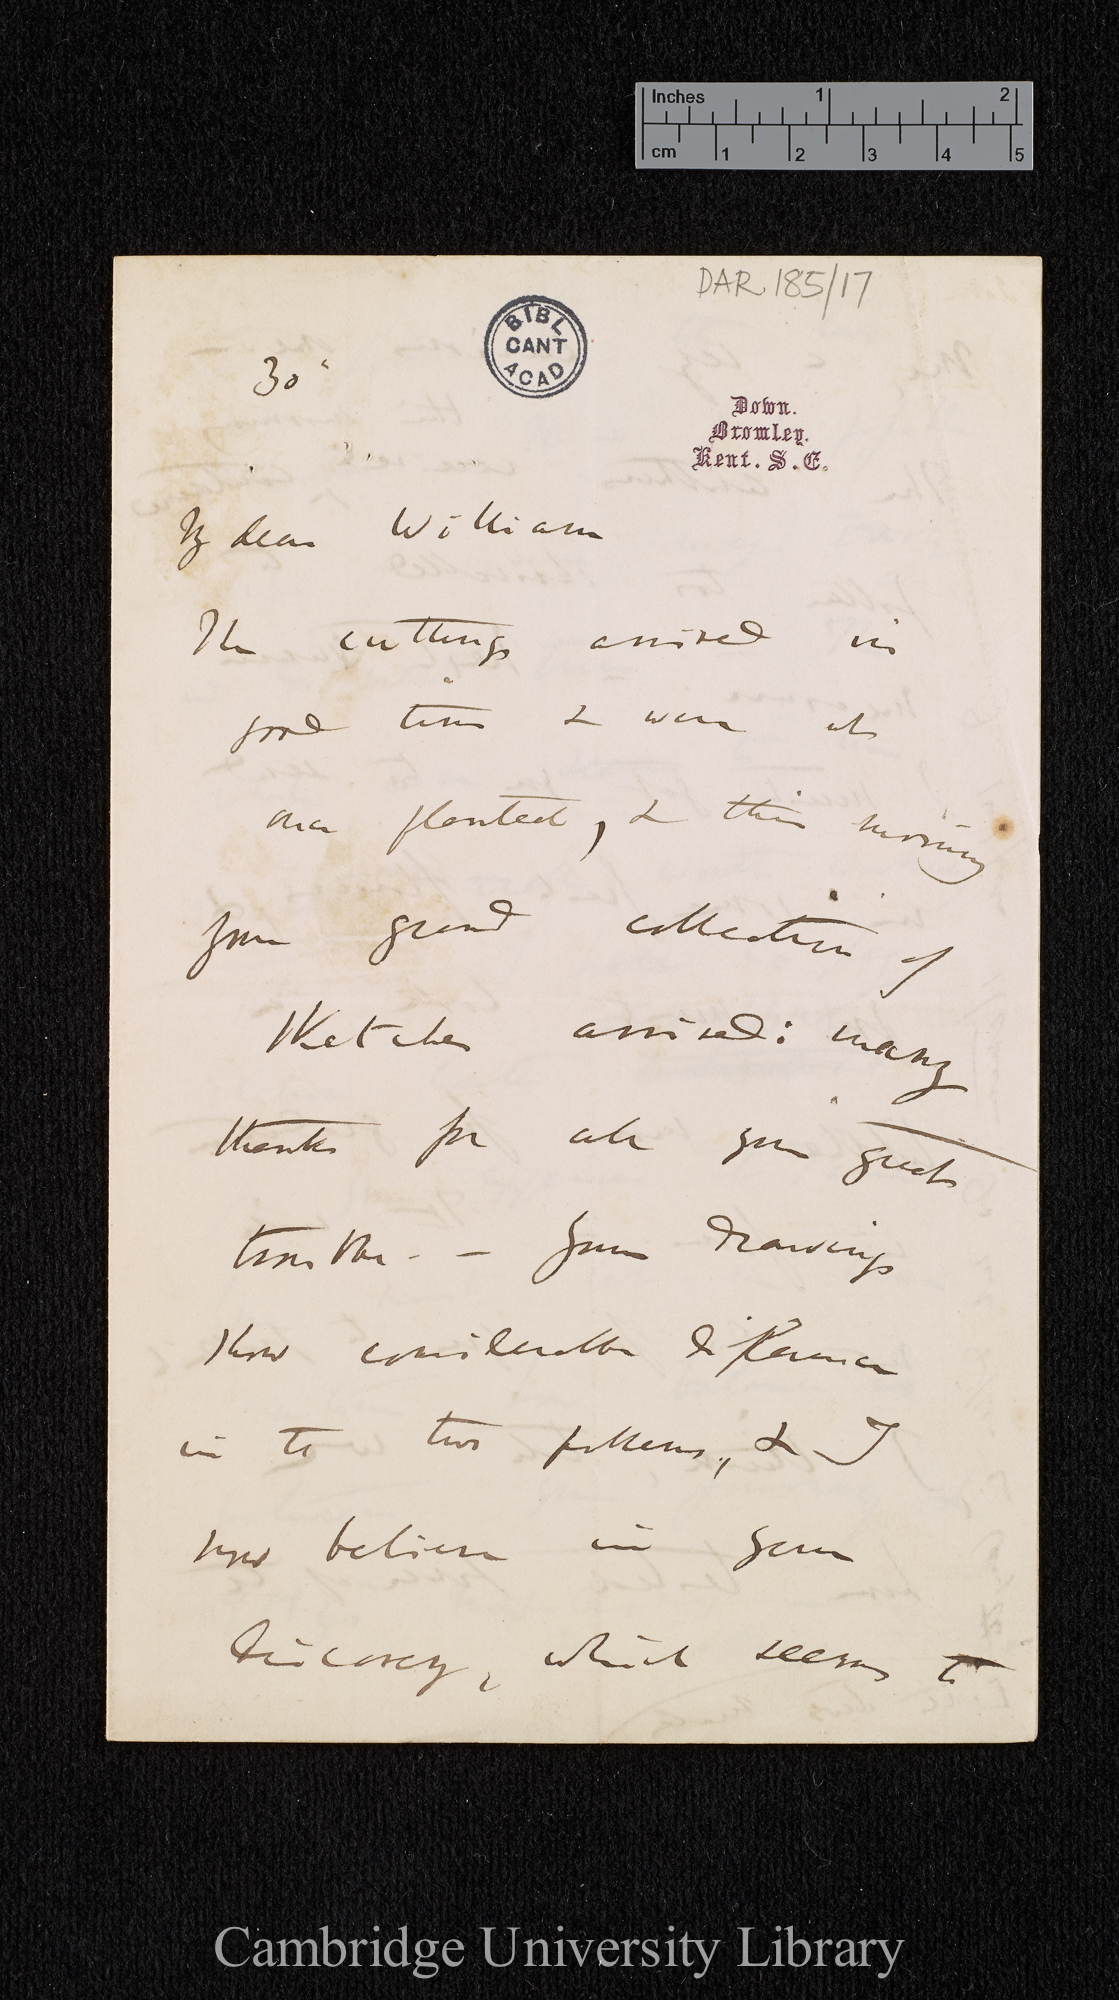 Inches 1 2
cm 1 2 3 4 5
DAR. 185/17
BIBL
CANT
ACAD
30th
Down.
Bromley.
Kent. S.E.
My dear William
The cuttings arrived in
good time & were at
once planted, & this morning
your grand collection of
sketches arrived: many
thanks for all your great
trouble. — Your drawings
show considerable difference
in the two pollens, & I
now believe in your
discovery, which seems to
Cambridge University Library